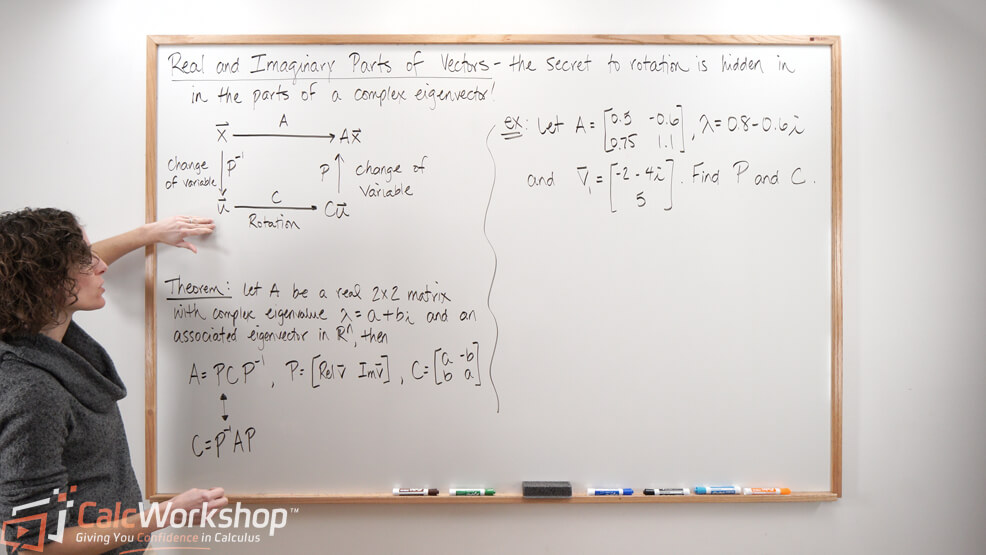 Real and Imaginary Parts of Vectors - the secret to rotation is hidden in
in the parts of a complex eigenvector!
x⃗ A Ax⃗
change of variable P⁻¹
P change of variable
u⃗ C Cu⃗
Rotation
Theorem: Let A be a real 2x2 matrix
with complex eigenvalue λ=a+bi and an
associated eigenvector in ℝⁿ, then
A=PCP⁻¹, P=[Rel v⃗ Im v⃗], C=[a -b; b a]
C=P⁻¹AP
ex: Let A=[0.5 -0.6; 0.75 1.1], λ=0.8-0.6i
and v⃗₁=[-2-4i; 5]. Find P and C.
CalcWorkshop™
Giving You Confidence in Calculus